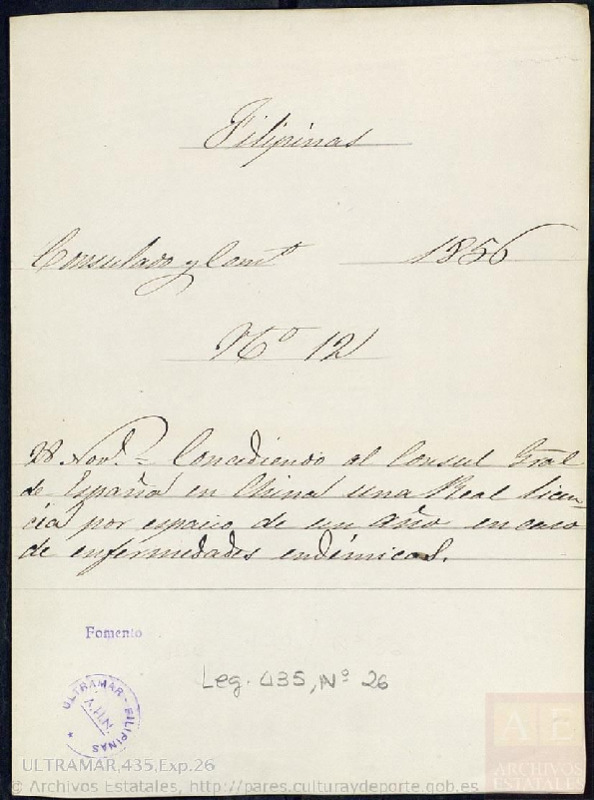 Filipinas
Consulado y Com.º 1856
Nº 12
28 Nov.e = Concediendo al Consul Gral
de España en China una Real licen-
cia por espacio de un año en caso
de enfermedades endémicas.
Fomento
Leg. 435, Nº 26
ULTRAMAR - FILIPINAS
A.H.N.
*
AE
ARCHIVOS
ESTATALES
ULTRAMAR,435,Exp.26
© Archivos Estatales, http://pares.culturaydeporte.gob.es